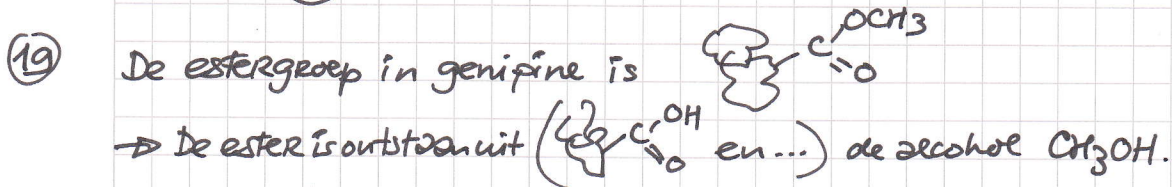 19 De estergroep in genipine is C OCH3 O
→ De ester is ontstaan uit ( C OH O en...) de alcohol CH3OH.